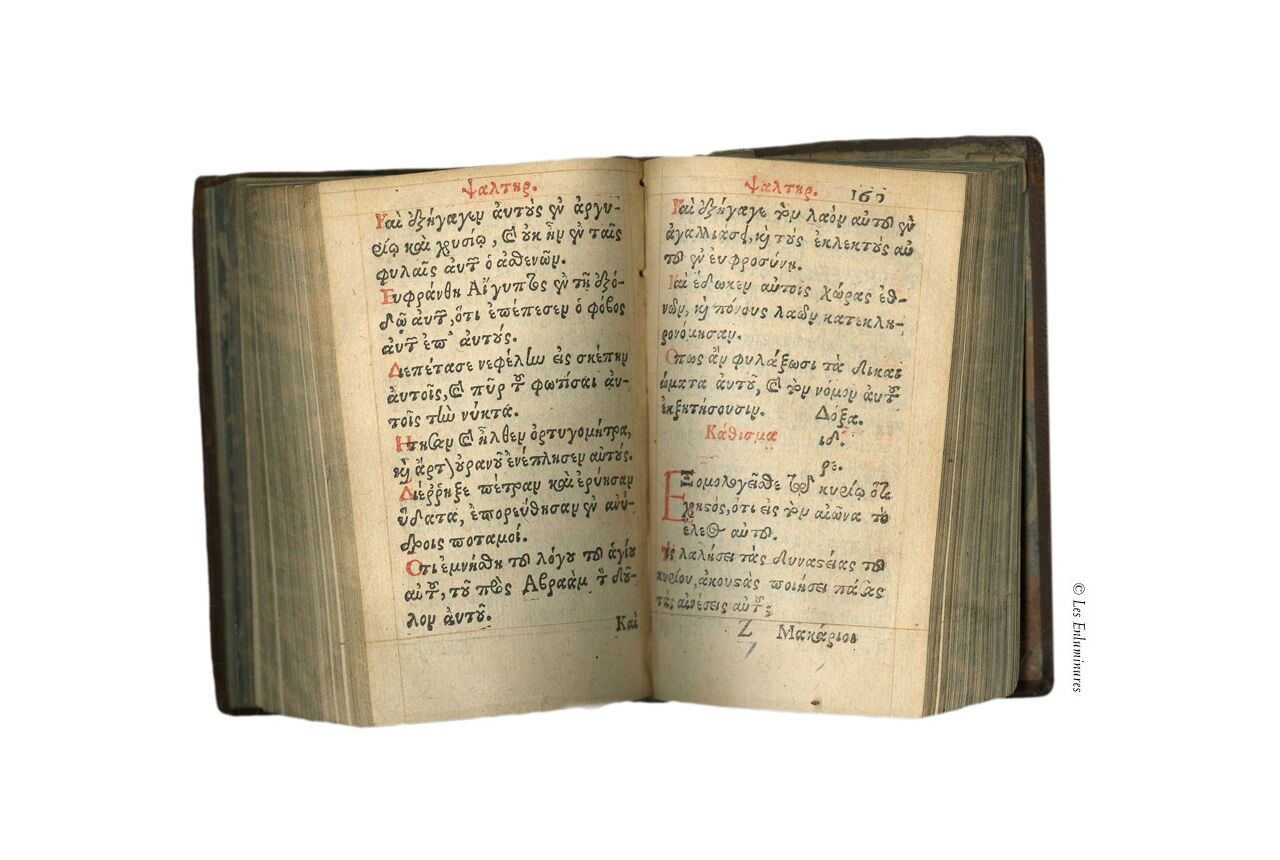 ψαλτηρ.
Καὶ ἐξήγαγεν ἀυτοὺς ἐν ἀργυ-
ρίῳ καὶ χρυσίῳ, καὶ ὀυκ ἦν ἐν ταῖς
φυλαῖς ἀυτῶν ὁ ἀσθενῶν.
Ευφράνθη Αἴγυπτος ἐν τῇ ἐξό-
δῳ ἀυτῶν, ὅτι ἐπέπεσεν ὁ φόβος
ἀυτῶν ἐπ' ἀυτούς.
Διεπέτασε νεφέλην εἰς σκέπην
ἀυτοῖς, καὶ πῦρ τοῦ φωτίσαι ἀυ-
τοῖς τὴν νύκτα.
Ητησαν καὶ ἦλθεν ὀρτυγομήτρα,
καὶ ἄρτον ὀυρανοῦ ἐνέπλησεν ἀυτούς.
Διέρρηξε πέτραν καὶ ἐρύησαν
ὕδατα, ἐπορεύθησαν ἐν ἀνύ-
δροις ποταμοί.
Οτι ἐμνήσθη τοῦ λόγου τοῦ ἁγίου
αὐτοῦ, τοῦ πρὸς Αβραὰμ τὸν δοῦ-
λον ἀυτοῦ.
Καὶ
ψαλτηρ. 161
Καὶ ἐξήγαγε τὸν λαὸν αὐτοῦ ἐν
ἀγαλλιάσει, καὶ τοὺς ἐκλεκτοὺς αὐ
τοῦ ἐν ἐυφροσύνῃ.
Καὶ ἔδωκεν αὐτοῖς χώρας ἐθ-
νῶν, καὶ πόνους λαῶν κατεκλη-
ρονόμησαν.
Οπως ἂν φυλάξωσι τὰ δικαι
ώματα αὐτοῦ, καὶ τὸν νόμον ἀυτοῦ
ἐκζητήσουσιν. Δόξα.
Κάθισμα ιδ.
ρε.
Εξομολογεῖσθε τῷ κυρίῳ ὅτι
χρηστός, ὅτι εἰς τὸν αἰῶνα τὸ
ἔλεος αὐτοῦ.
Τίς λαλήσει τὰς δυναστείας τοῦ
κυρίου, ἀκουστὰς ποιήσει πάσας
τὰς αἰνέσεις αὐτοῦ;
Z Μακάριοι
© Les Enluminures